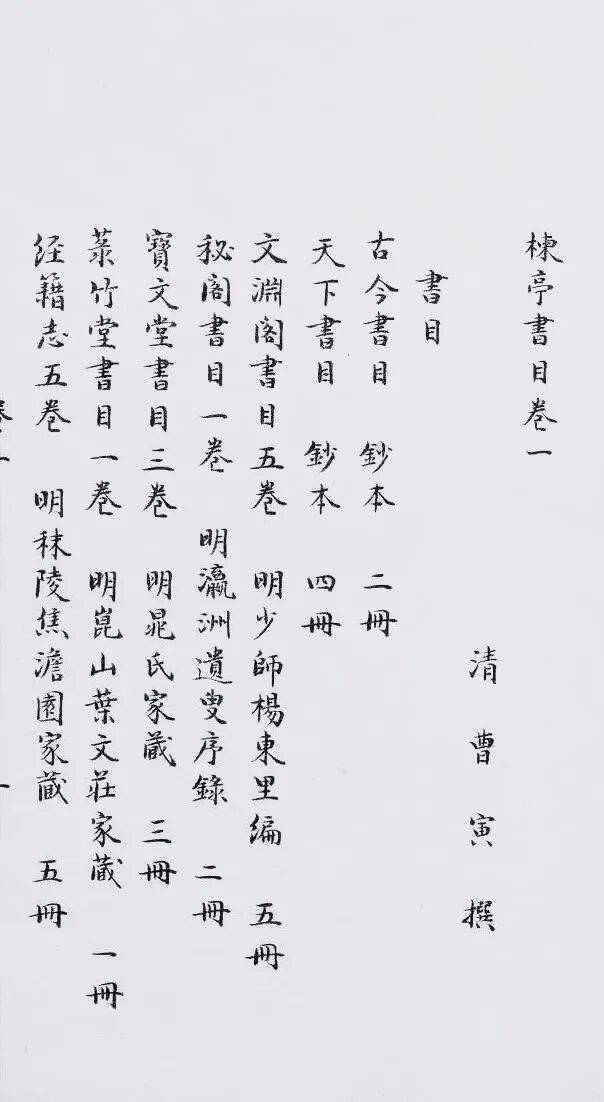 楝亭書目卷一
清曹寅撰
書目
古今書目 鈔本 二冊
天下書目 鈔本 四冊
文淵閣書目五卷 明少師楊東里編 五冊
秘閣書目一卷 明瀛洲遺叟序錄 二冊
寶文堂書目三卷 明晁氏家蔵 三冊
菉竹堂書目一卷 明崑山葉文莊家蔵 一冊
経籍志五卷 明秣陵焦澹園家蔵 五冊